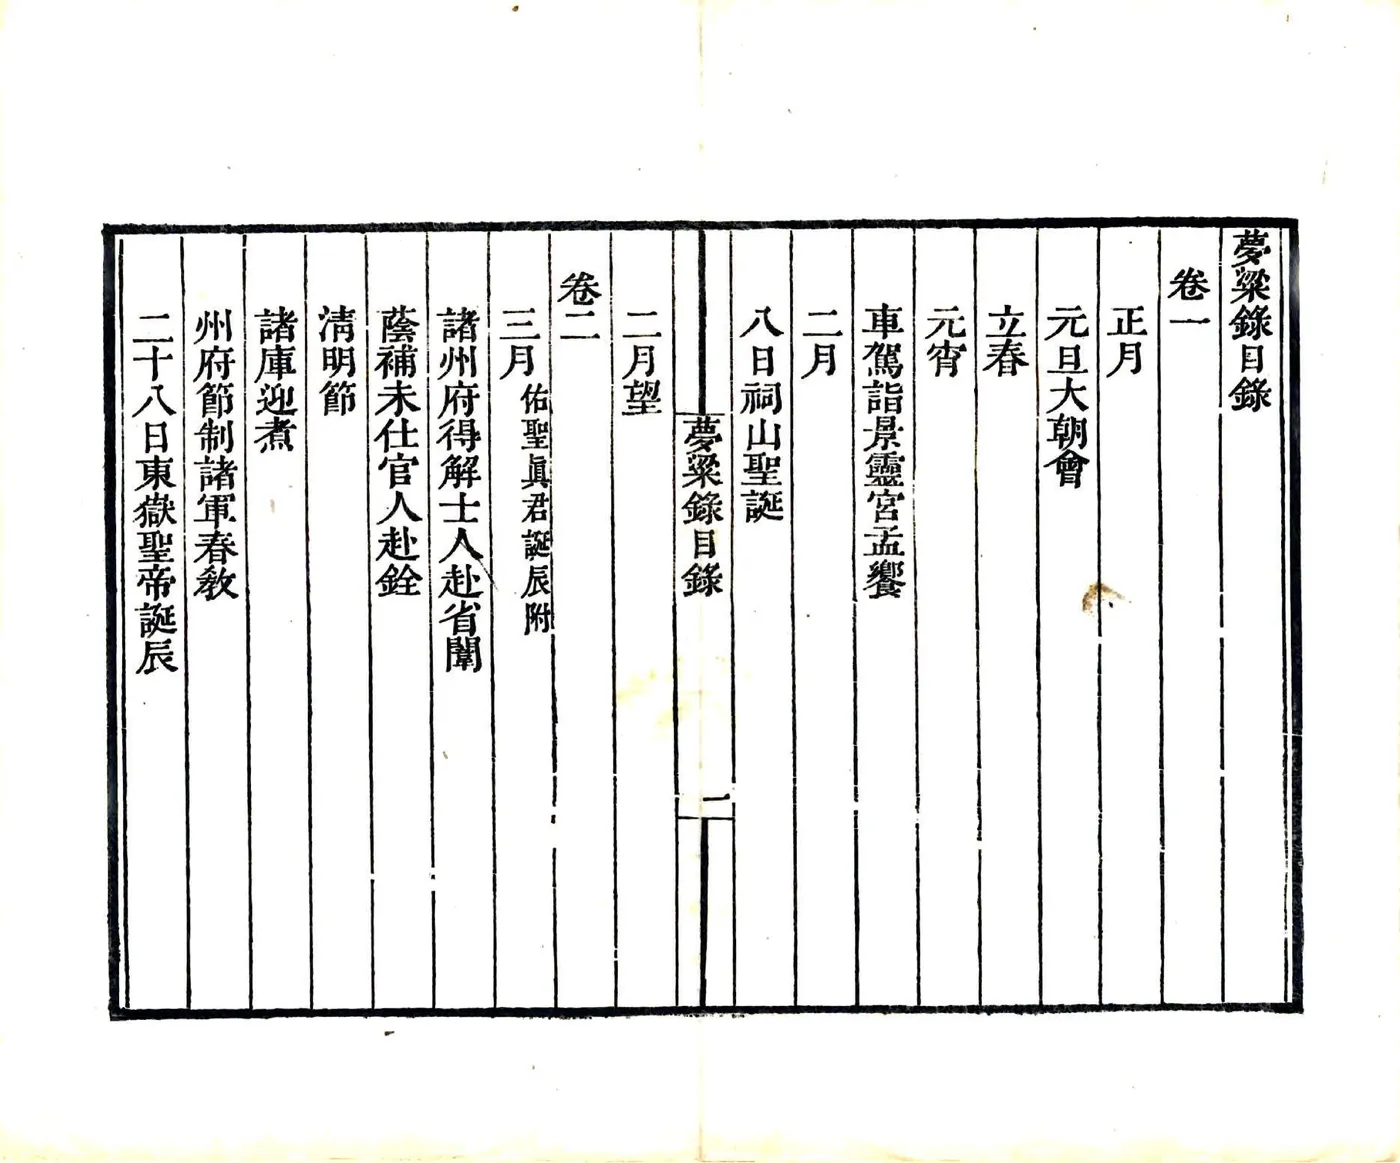 夢粱錄目錄
卷一
正月
元旦大朝會
立春
元宵
車駕詣景靈宮孟饗
二月
八日祠山聖誕
夢粱錄目錄
一
二月望
卷二
三月 佑聖眞君誕辰附
諸州府得解士人赴省闈
蔭補未仕官人赴銓
淸明節
諸庫迎煮
州府節制諸軍春敎
二十八日東嶽聖帝誕辰